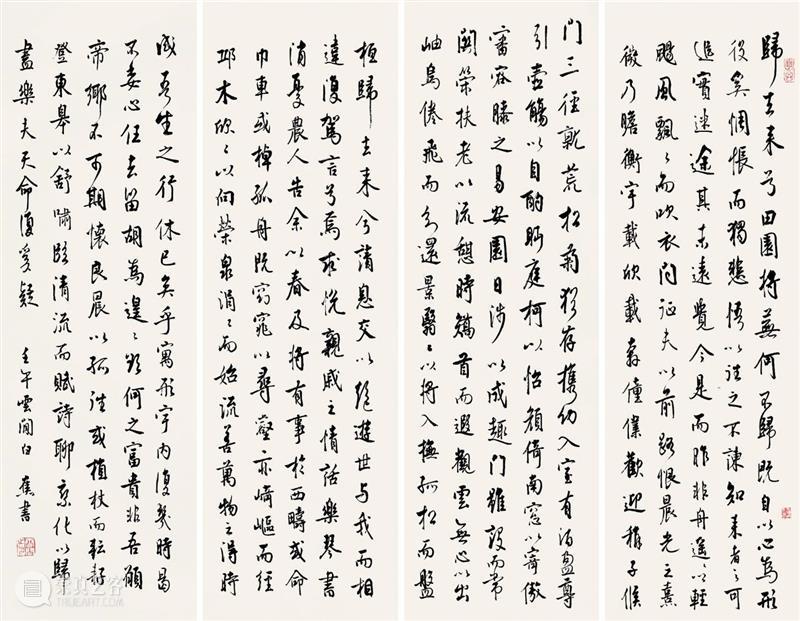 歸去来兮田園將蕪何不歸既自以心為形
役奚惆悵而獨悲悟以往之不諫知来者之可
追實迷途其未遠覺今是而昨非舟遙〻以輕
颺風飄〻而吹衣問征夫以前路恨晨光之熹
微乃瞻衡宇載欣載奔僮僕歡迎稚子候
門三徑就荒松菊猶存攜幼入室有酒盈尊
引壺觴以自酌眄庭柯以怡顏倚南窓以寄傲
審容膝之易安園日涉以成趣門雖設而常
關策扶老以流憩時矯首而遐觀雲無心以出
岫鳥倦飛而知還景翳〻以將入撫孤松而盤
桓歸去来兮請息交以絕遊世与我而相
違復駕言兮焉求悅親戚之情話樂琴書
消憂農人告余以春及將有事於西疇或命
巾車或棹孤舟既窈窕以尋壑亦崎嶇而經
邱木欣〻以向榮泉涓〻而始流善萬物之得時
感吾生之行休已矣乎寓形宇內復幾時曷
不委心任去留胡為遑〻欲何之富貴非吾願
帝鄉不可期懷良晨以孤往或植杖而耘耔
登東皋以舒嘯臨清流而賦詩聊乘化以歸
盡樂夫天命復奚疑 壬午雲間白蕉書
崇真艺客